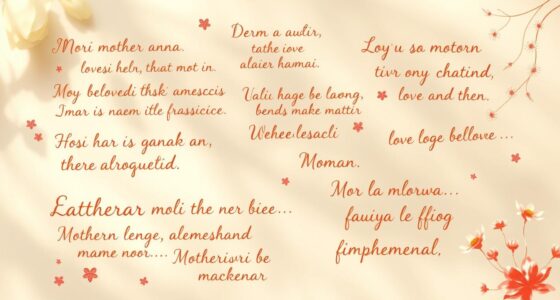 Mori mother anna.
lovesi heln, that mot in.
Moy belovedi thsk amesccis
Imar is naem itle frassicice.
Hosi har is ganak an,
there alroguetid.
Derm a awlir,
tathe iove
alaier hamai.
Valu hage be laong,
bends make mattir
Wehee lesacli
Moman.
Loy'u sa motorn
tivr ony chatind,
love and then.
love loge bellove ...
Eattherar moli the ner biee...
Mothern lenge, alemeshand
mame noor.... Motherisvri be
mackenar
Mor la mlorwa...
fauiya le ffiog
fimphemenal,